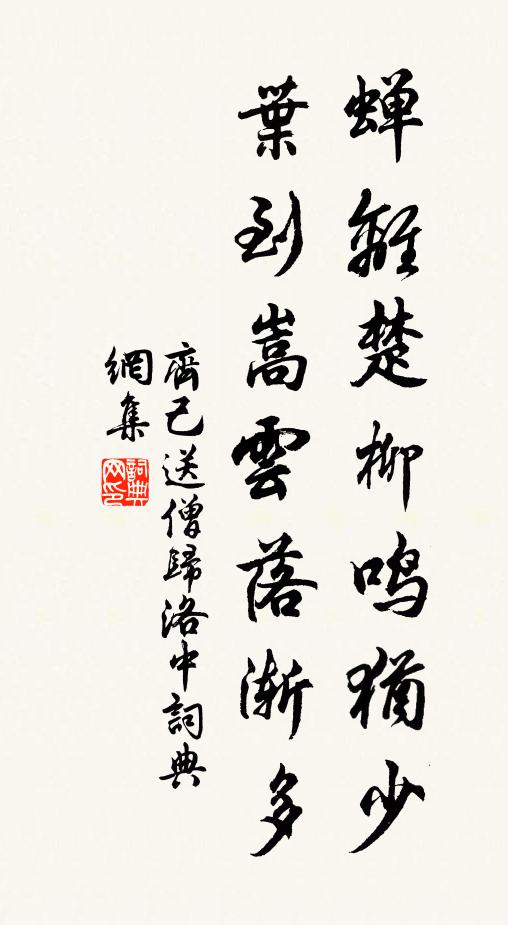 蝉離楚柳鳴猶少
葉到嵩雲落漸多
齊己送僧歸洛中詞典
網集
詞典
网印